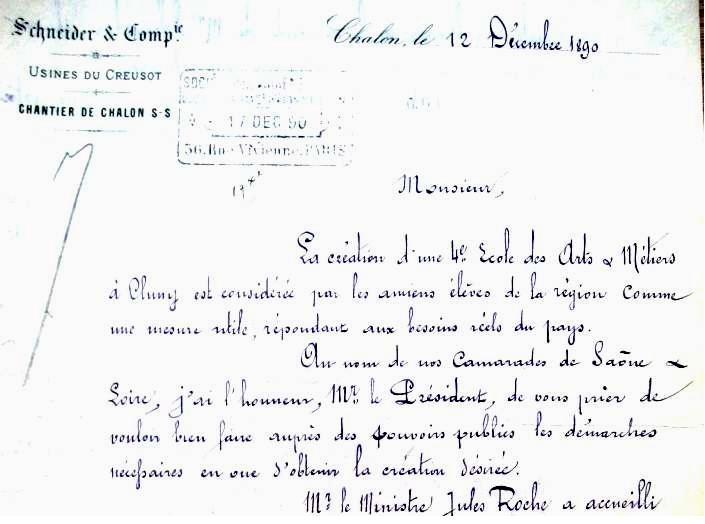 Schneider & Comp.ie
USINES DU CREUSOT
CHANTIER DE CHALON S-S
Chalon, le 12 Décembre 1890
17 DEC 90
56, Rue Vivienne, PARIS
Monsieur,
La création d'une 4e. Ecole des Arts & Métiers
à Cluny est considérée par les anciens élèves de la région comme
une mesure utile, répondant aux besoins réels du pays.
Au nom de nos Camarades de Saône &
Loire, j'ai l'honneur, Mr. le Président, de vous prier de
vouloir bien faire auprès des pouvoirs publics les démarches
nécessaires en vue d'obtenir la création désirée.
Mr. le Ministre Jules Roche a accueilli